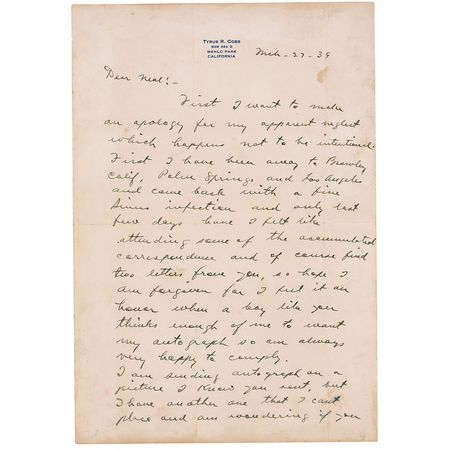 TYRUS R. COBB
BOX 288 G
MENLO PARK
CALIFORNIA
Mch-27-39
Dear Neal:-
First I want to make
an apology for my apparent neglect
which happens not to be intentional.
First I have been away to Brawley
Calif, Palm Springs and Los Angeles
and came back with a fine
sinus infection and only last
few days have I felt like
attending some of the accumulated
correspondence and of course find
two letters from you, so hope I
am forgiven for I feel it an
honor when a boy like you
thinks enough of me to want
my autograph so am always
very happy to comply.
I am sending autograph on a
picture I know you sent, but
I have another one that I cant
place and am wondering if you